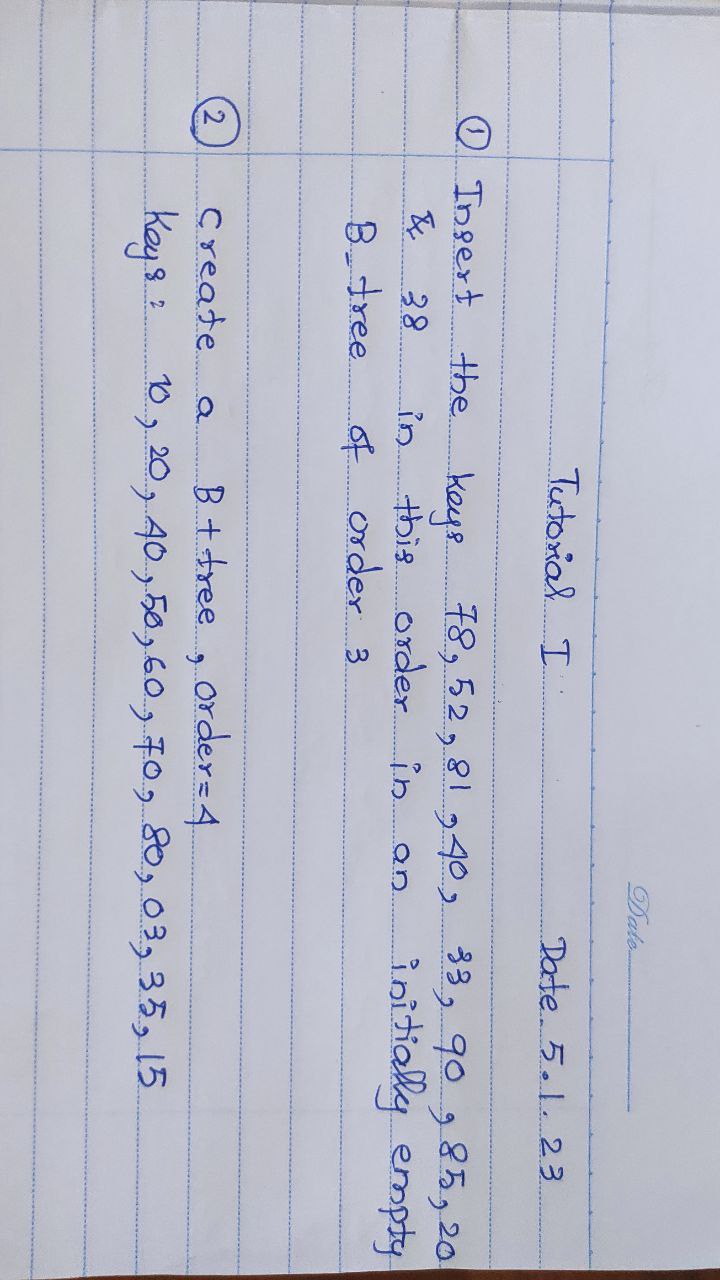 Date
Tutorial I Date. 5.1.23
① Insert the keys 78, 52, 81, 40, 33, 90, 85, 20
& 38 in this order in an initially empty
B-tree of order 3
② Create a B+tree, order=4
Keys: 10, 20, 40, 50, 60, 70, 80, 03, 35, 15